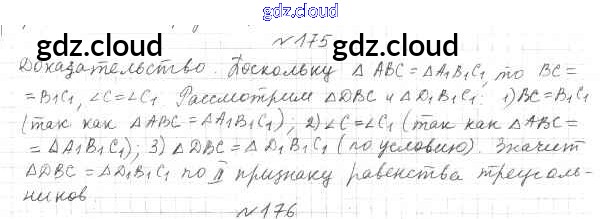 gdz.cloud
№175
gdz.cloud gdz.cloud
Доказательство. Поскольку △ ABC = △A₁B₁C₁, то BC =
= B₁C₁, ∠C = ∠C₁. Рассмотрим △DBC и △D₁B₁C₁: 1) BC = B₁C₁
(так как △ABC = △A₁B₁C₁); 2) ∠C = ∠C₁ (так как △ABC =
= △A₁B₁C₁); 3) △DBC = △D₁B₁C₁ (по условию). Значит
△DBC = △D₁B₁C₁ по II признаку равенства треуголь-
ников.
gdz.cloud gdz.cloud
№176